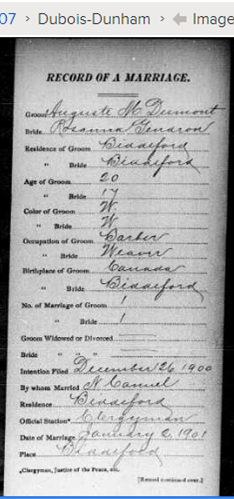 07 › Dubois-Dunham › Image
RECORD OF A MARRIAGE.
Groom Auguste M Dumont
Bride Rosanna Gendron
Residence of Groom Biddeford
" Bride Biddeford
Age of Groom 20
" Bride 17
Color of Groom W
" Bride W
Occupation of Groom Barber
" Bride Weaver
Birthplace of Groom Canada
" Bride Biddeford
No. of Marriage of Groom 1
" Bride 1
Groom Widowed or Divorced
Bride " "
Intention Filed December 26 1900
By whom Married N
Residence Biddeford
Official Station* Clergyman
Date of Marriage January 2, 1901
Place Biddeford
*Clergyman, Justice of the Peace, etc.
[Record continued over.]